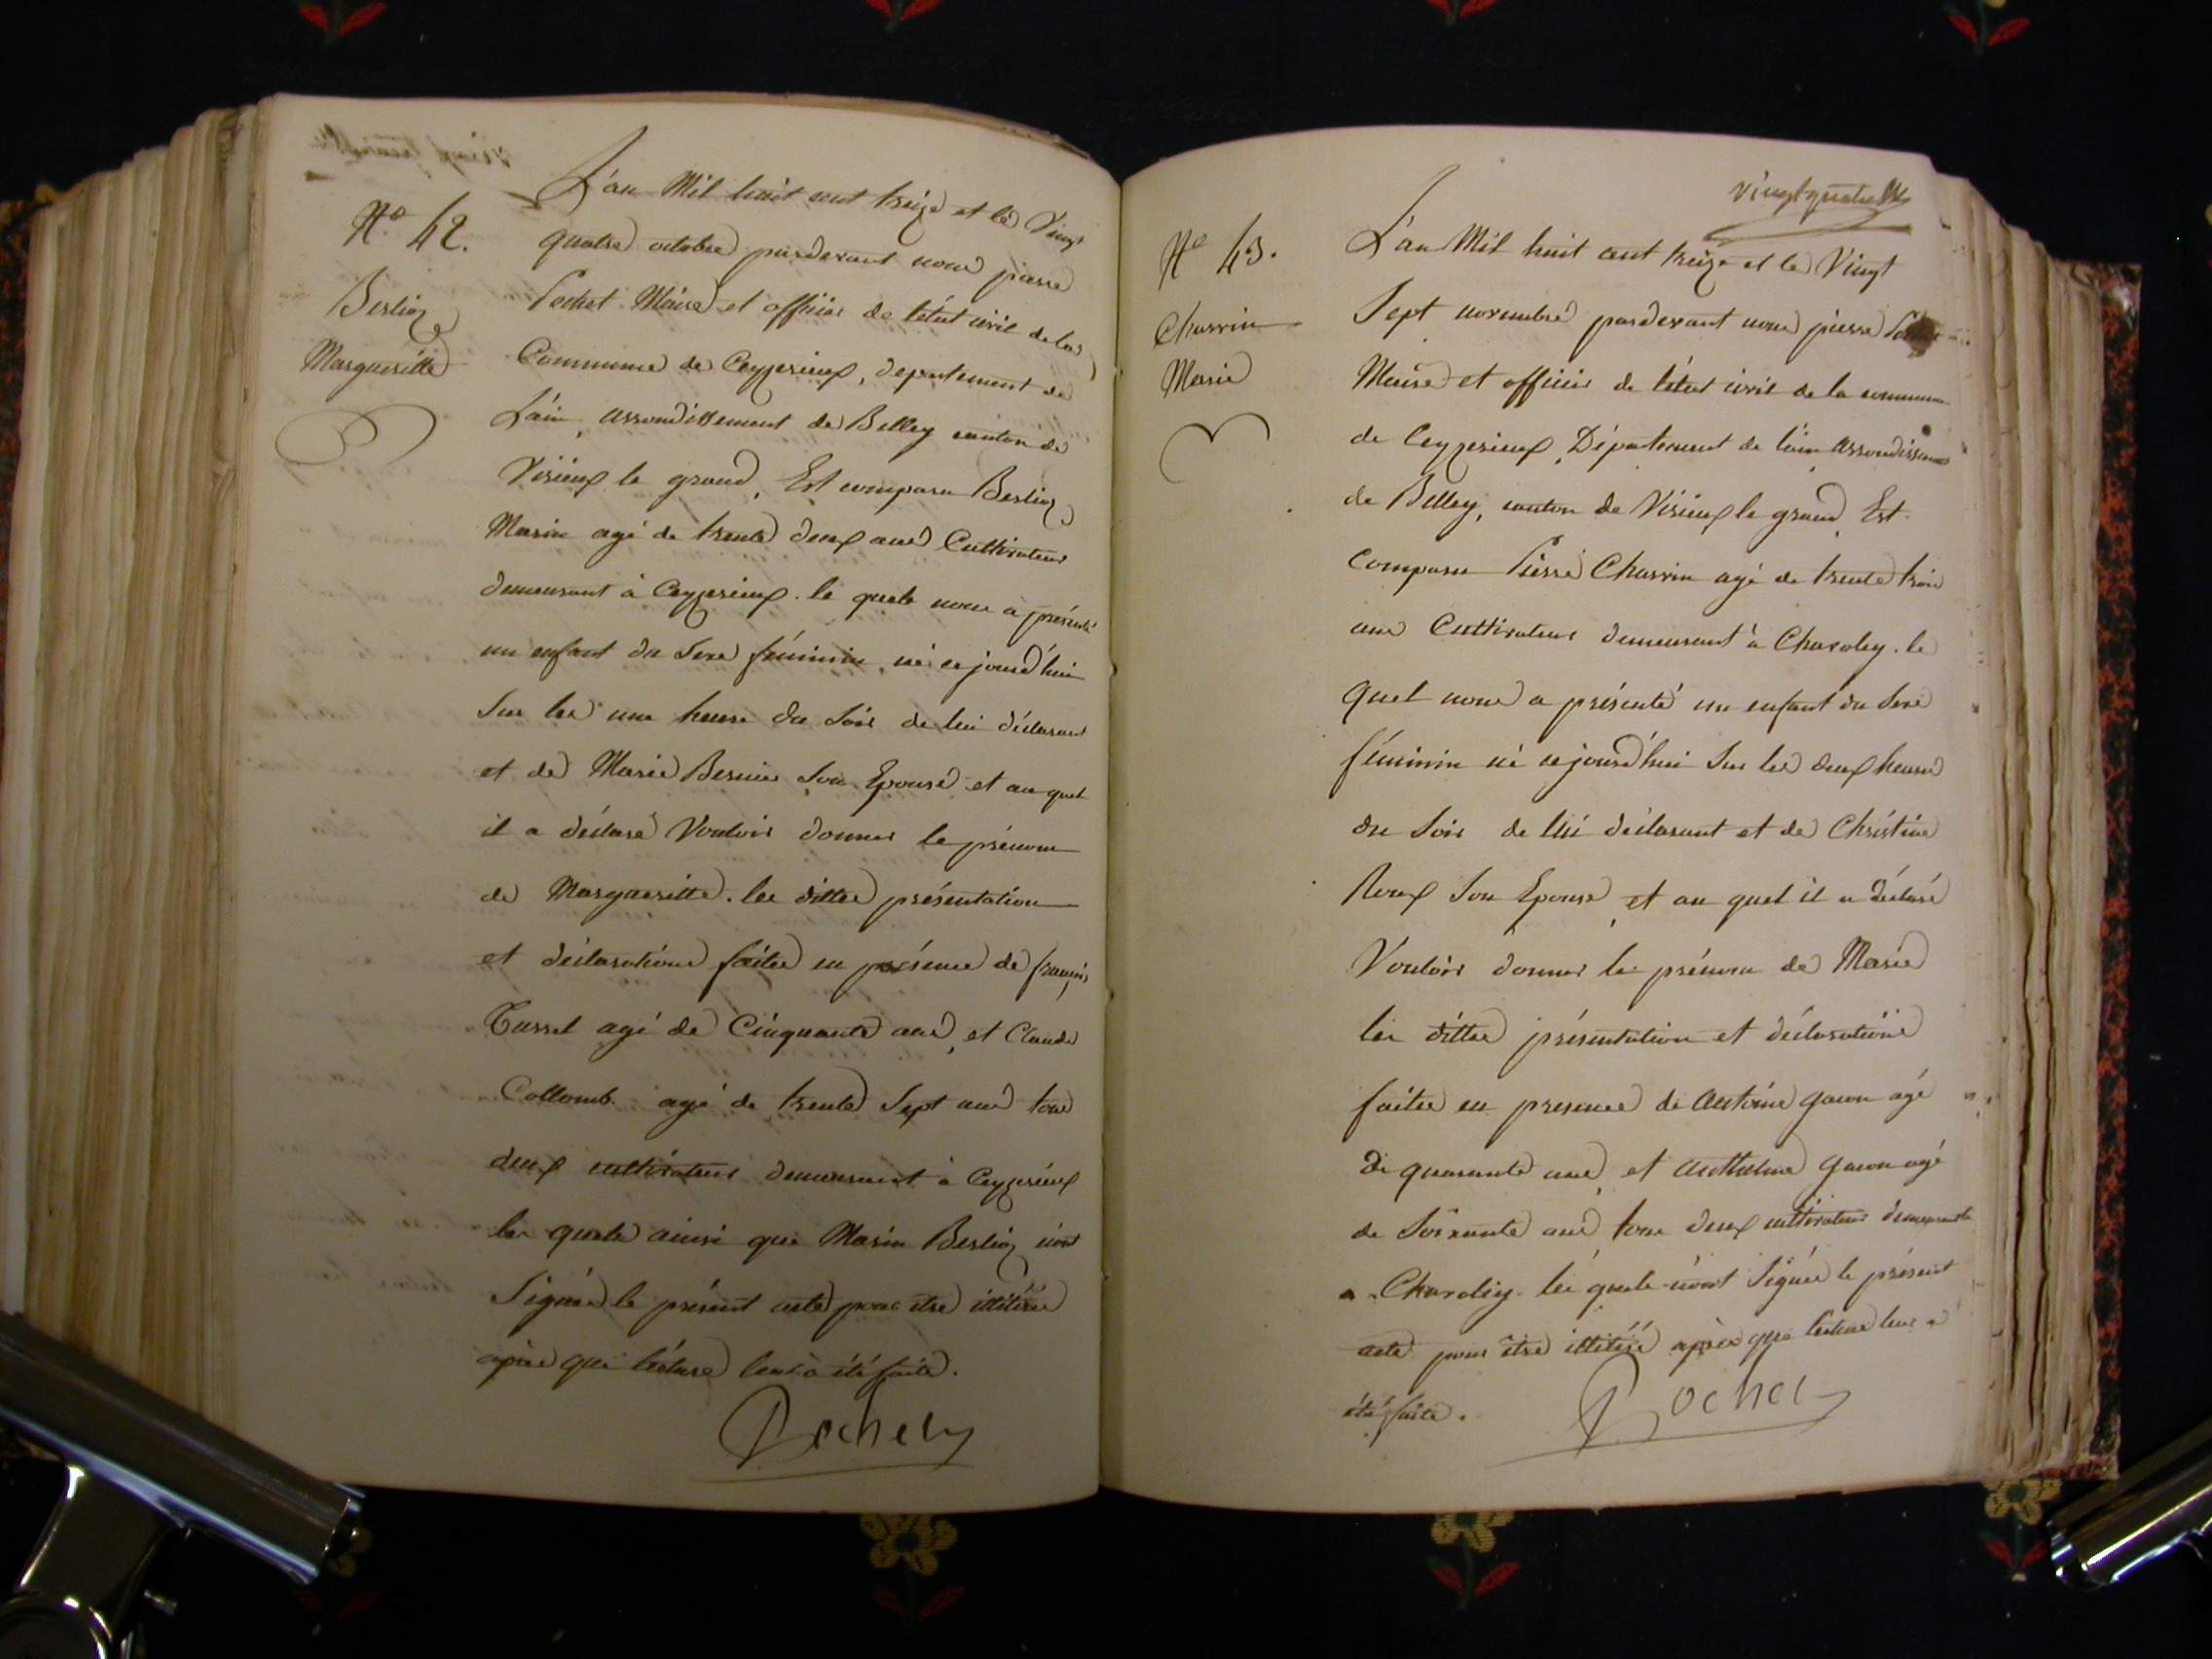 N.º 42.
Berlioz
Marguéritte
L'an Mil huit cent treize et le Vingt
quatre octobre pardevant nous pierre
Pochet Maire et officier de létat civil de la
Commune de Ceyzerieux, departement de
L'ain, arrondissement de Belley canton de
Virieux le grand, Est comparu Berlioz
Marin agé de trente deux ans Cultivateur
demeurant à Ceyzerieux. le quele nous a présenté
un enfant du Sexe féminin, né cejourd'hui
Sur les une heure du Soir de lui déclarant
et de Marie Bernier Son Epouse et au quel
il a déclaré Vouloir donner le prénom
de Margueritte. les dittes présentation
et déclarations faites en présence de françois
agé de Cinquante ans, et Claude
Collomb agé de trente Sept ans tous
deux cultivateurs demeurant à Ceyzerieux
les quels ainsi que Marin Berlioz n'ont
Signés le présent acte pour etre illitéres
après que lecture leur à été faite.
Pochet
vingt quatre
Nº 43.
Charvin
Marie
L'an Mil huit cent treize et le Vingt
Sept novembre pardevant nous pierre
Maire et officier de létat civil de la commune
de Ceyzerieux, Département de l'ain arrondissement
de Belley, canton de Virieux le grand, Est
comparu Pierre Charvin agé de trente trois
ans Cultivateur demeurant à Chavoley. le
quel nous a présenté un enfant du Sexe
féminin né cejourd'hui Sur les deux heures
du Soir de lui déclarant et de Christine
Roux Son Epouse, et au quel il a déclaré
Vouloir donner le prénom de Marie
les dittes présentation et déclarations
faites en presence de Antoine gacon agé
de quarante ans, et Anthelme gacon agé
de Soixante ans, tous deux cultivateurs demeurants
a Chavoley. les quels n'ont Signés le présent
acte pour être illitéré après que lecture leur a
été faite.
Pochet